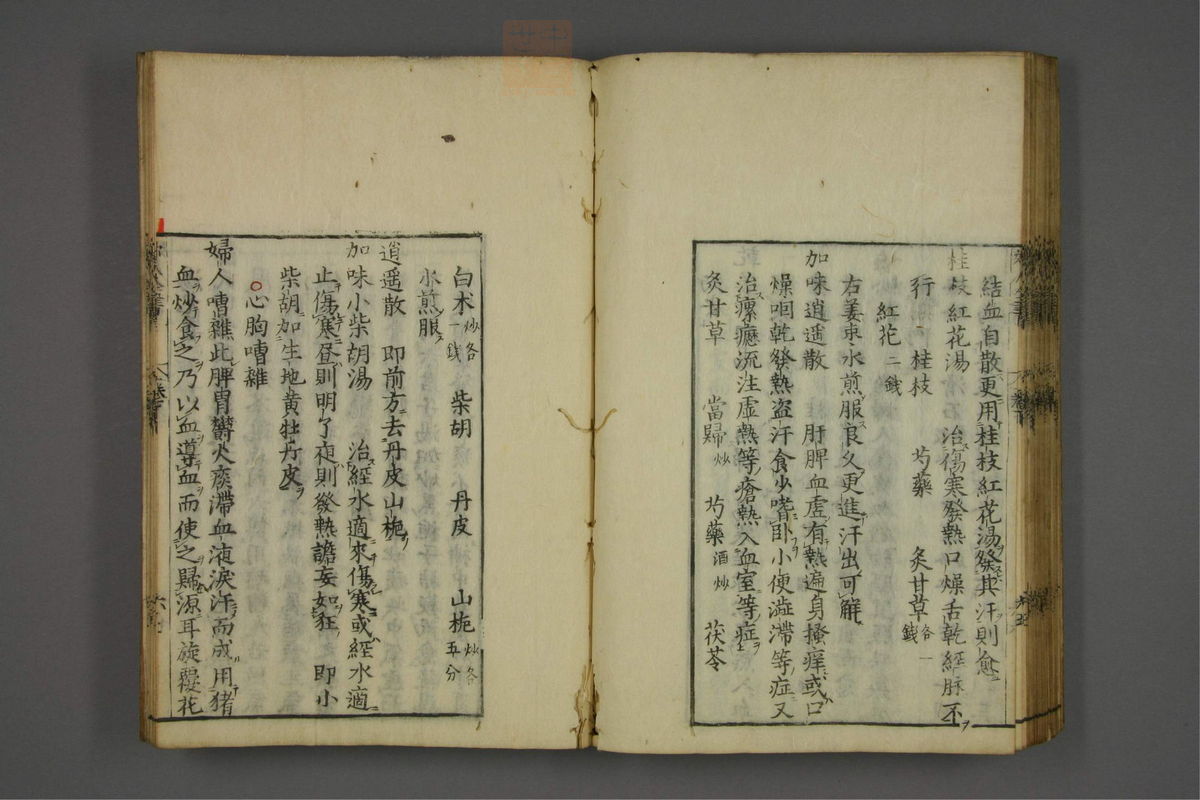 結血自散更用桂枝紅花湯發其汗則愈
桂枝紅花湯 治傷寒發熱口燥舌乾經脉不
行 桂枝 芍藥 炙甘草各一錢
紅花二錢
右姜枣水煎服良久更進汗出可解
加味逍遥散 肝脾血虛有熱遍身搔痒或口
燥咽乾發熱盗汗食少嗜卧小便澁滯等症又
治瘰癧流注虛熱等瘡熱入血室等症
炙甘草 當歸炒 芍藥酒炒 茯苓
白朮炒各一錢 柴胡 丹皮 山梔炒各五分
水煎服
逍遥散 即前方去丹皮山梔
加味小柴胡湯 治經水適來傷寒或經水適
止傷寒昼則明了夜則發熱譫妄如狂 即小
柴胡加生地黄牡丹皮
心胸嘈雜
婦人嘈雜此脾胃欝火痰滯血液淚汗而成用猪
血炒食之乃以血導血而使之歸源耳旋覆花